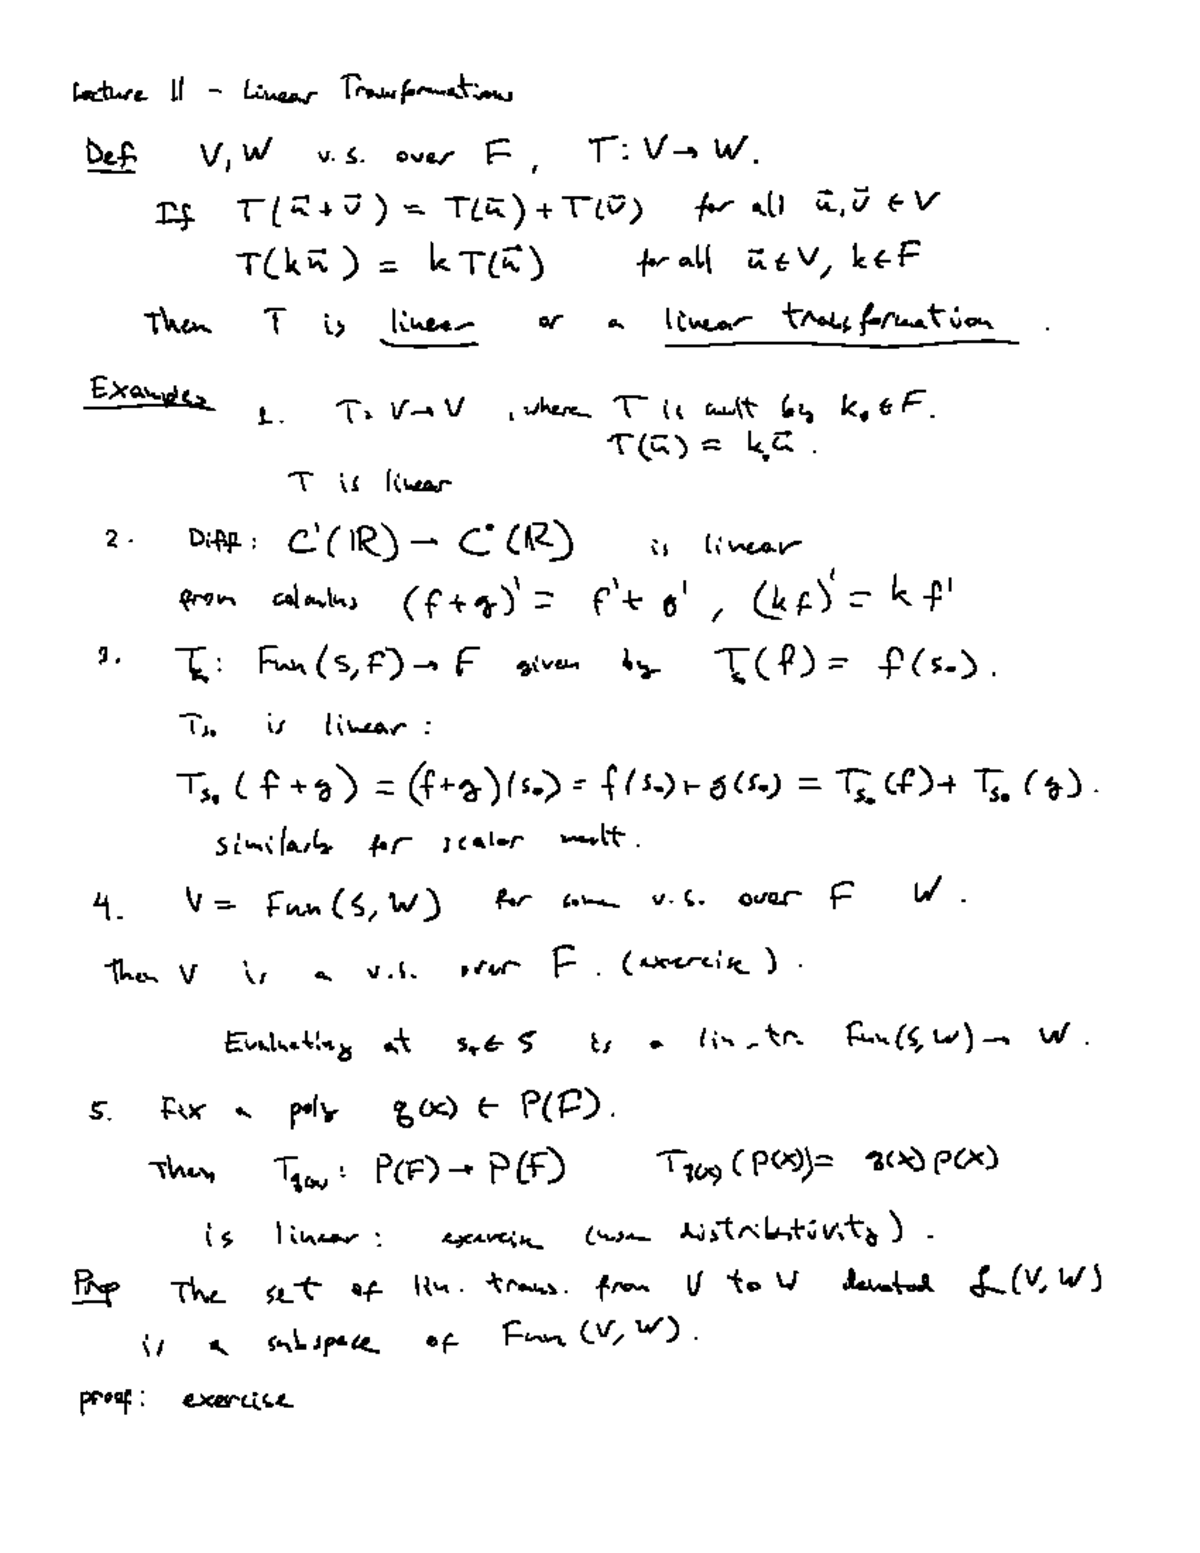 Lecture 11 - Linear Transformations
Def V, W v.s. over F, T: V → W.
If T(u⃗ + v⃗) = T(u⃗) + T(v⃗) for all u⃗, v⃗ ∈ V
T(ku⃗) = k T(u⃗) for all u⃗ ∈ V, k ∈ F
Then T is linear or a linear transformation.
Examples 1. T: V → V, where T is mult by k₀ ∈ F.
T(u⃗) = k₀u⃗.
T is linear
2. Diff: C¹(ℝ) → C⁰(ℝ) is linear
from calculus (f+g)' = f' + g', (kf)' = k f'
3. Tₛ₀: Fun(S, F) → F given by Tₛ₀(f) = f(s₀).
Tₛ₀ is linear:
Tₛ₀(f+g) = (f+g)(s₀) = f(s₀) + g(s₀) = Tₛ₀(f) + Tₛ₀(g).
similarly for scalar mult.
4. V = Fun(S, W) for some v.s. over F W.
Then V is a v.s. over F. (exercise).
Evaluating at s₀ ∈ S is a lin. tr. Fun(S, W) → W.
5. Fix a poly q(x) ∈ P(F).
Then T_q(x): P(F) → P(F) T_q(x)(p(x)) = q(x) p(x)
is linear: exercise (use distributivity).
Prop The set of lin. trans. from V to W denoted ℒ(V, W)
is a subspace of Fun(V, W).
proof: exercise